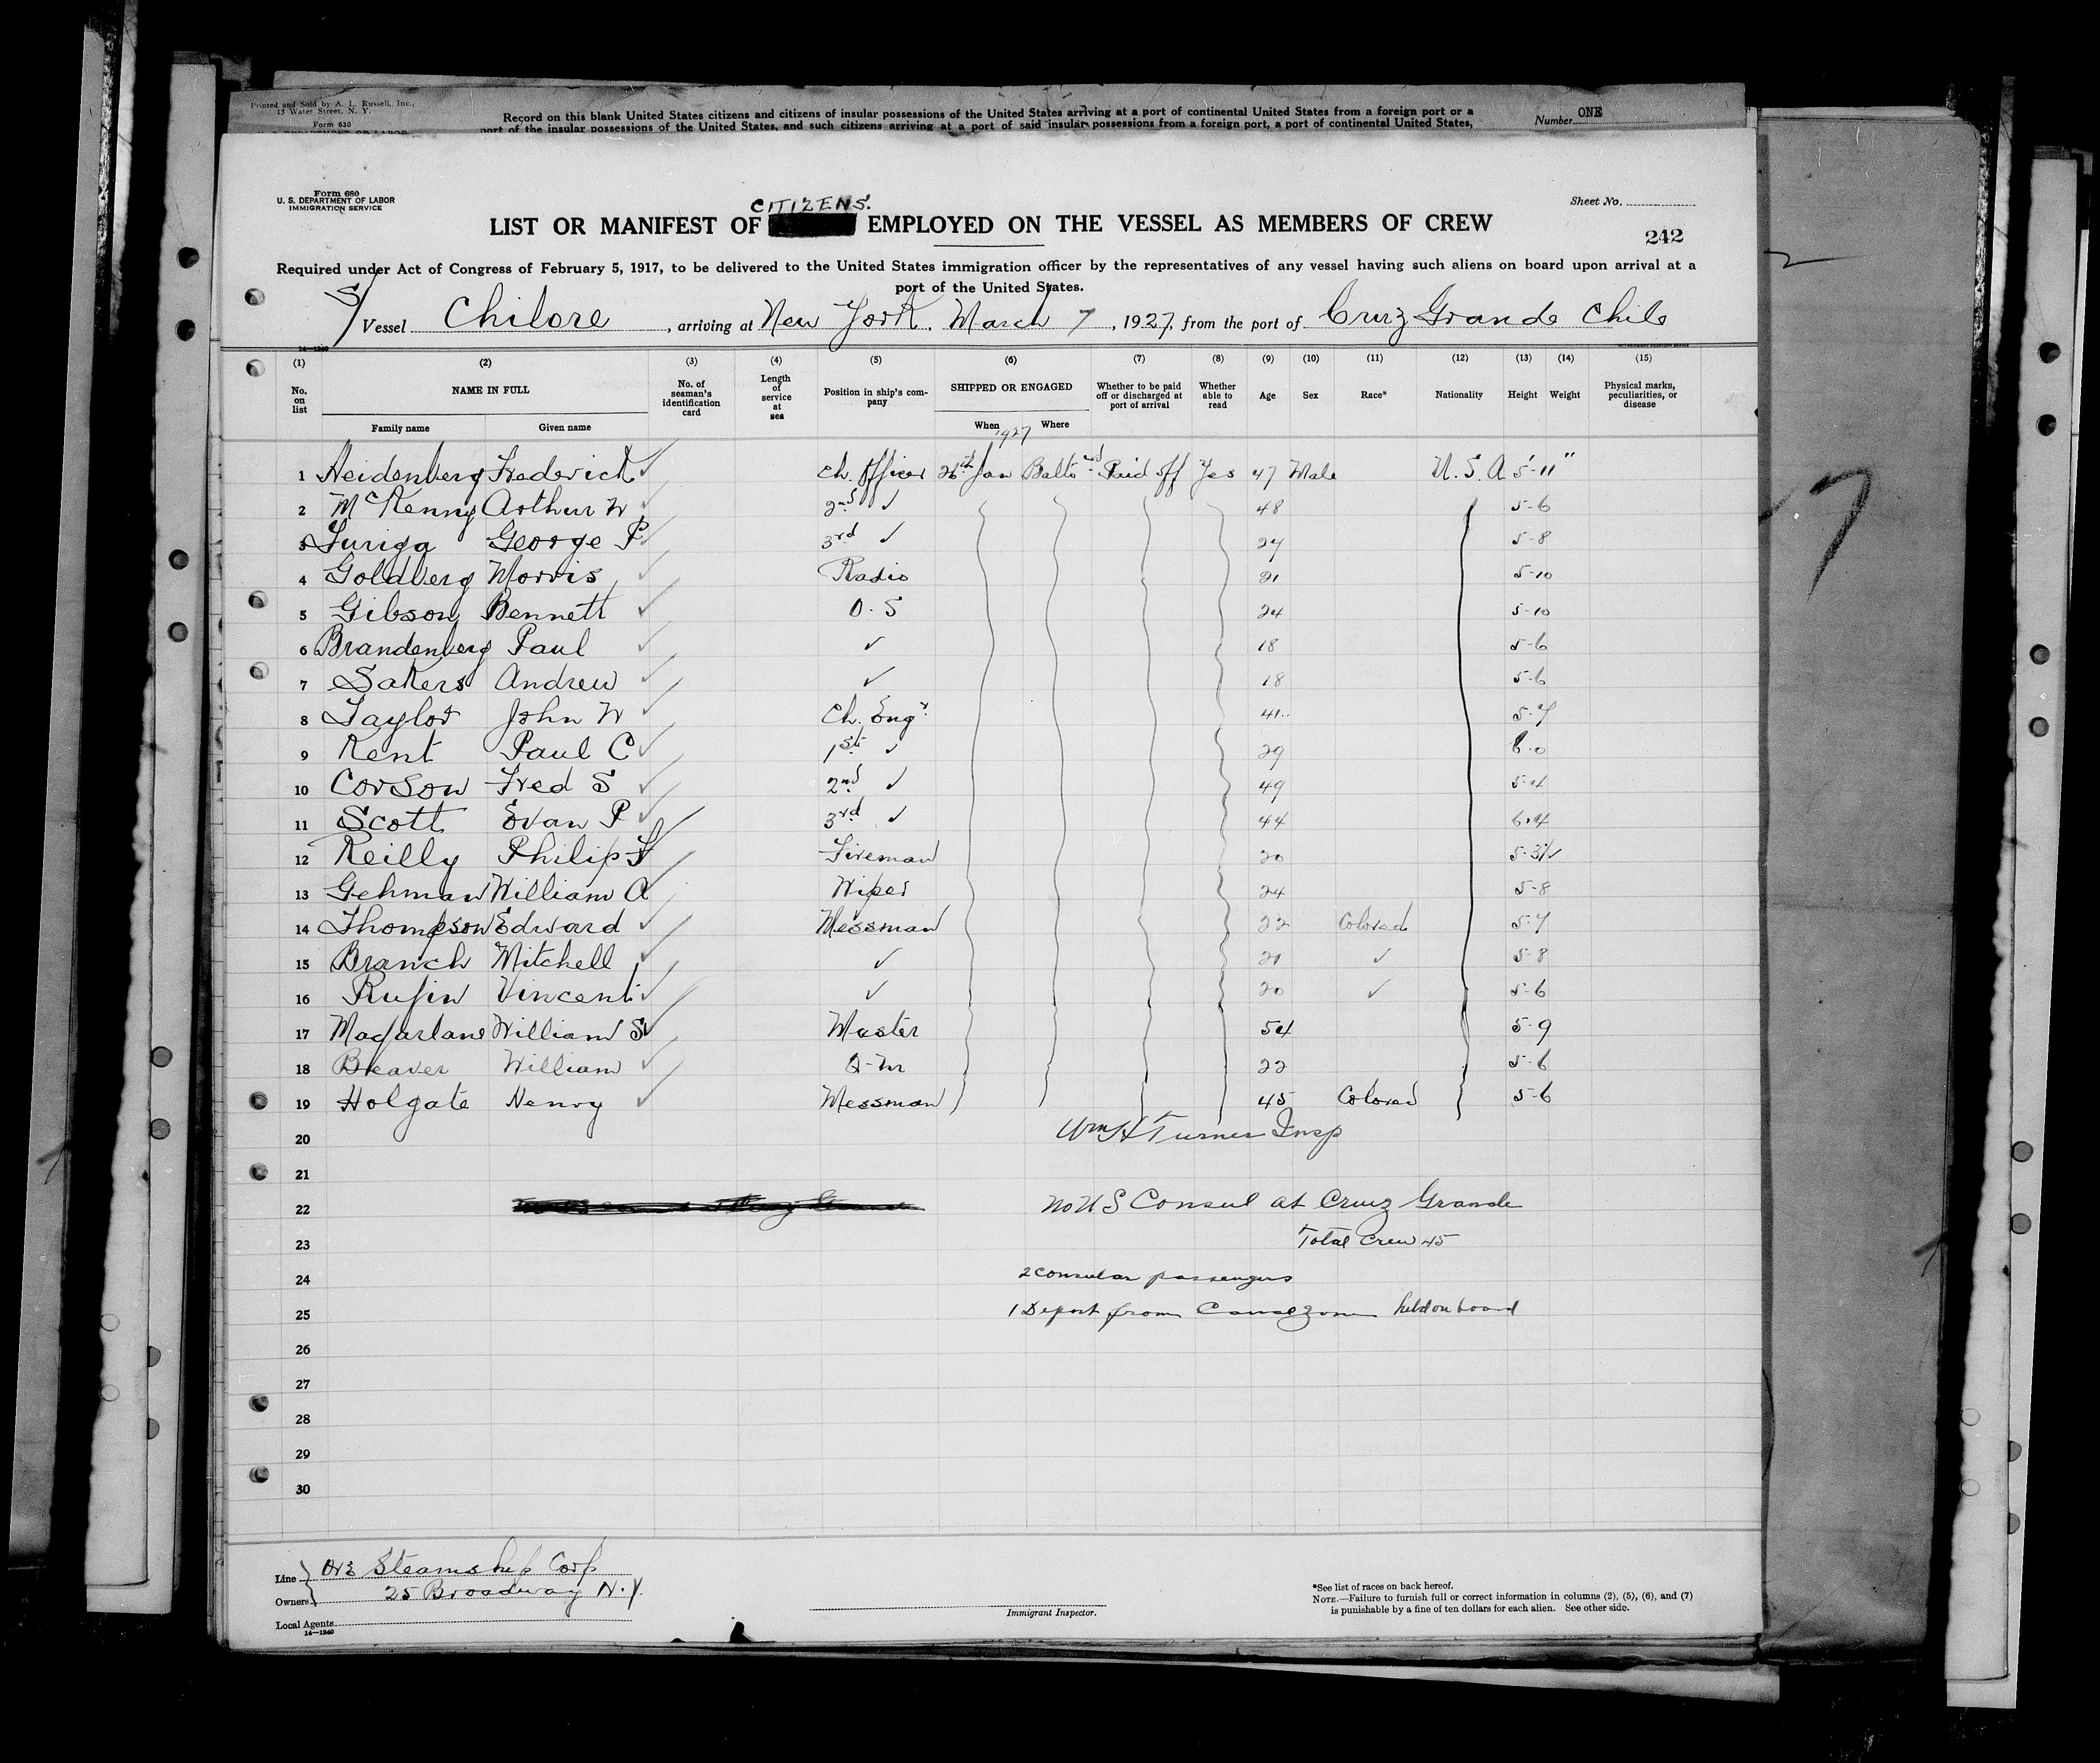 Printed and Sold by A. L. Russell, Inc.,
13 Water Street, N. Y.
Form 630
Record on this blank United States citizens and citizens of insular possessions of the United States arriving at a port of continental United States from a foreign port or a
port of the insular possessions of the United States, and such citizens arriving at a port of said insular possessions from a foreign port, a port of continental United States,
Number ONE
Form 680
U. S. DEPARTMENT OF LABOR
IMMIGRATION SERVICE
Sheet No.
242
CITIZENS.
LIST OR MANIFEST OF EMPLOYED ON THE VESSEL AS MEMBERS OF CREW
Required under Act of Congress of February 5, 1917, to be delivered to the United States immigration officer by the representatives of any vessel having such aliens on board upon arrival at a
port of the United States.
S/ Vessel Chilore, arriving at New York. March 7, 1927, from the port of Cruz Grande Chile
14—1240
(1) (2) (3) (4) (5) (6) (7) (8) (9) (10) (11) (12) (13) (14) (15)
No. on list NAME IN FULL No. of seaman's identification card Length of service at sea Position in ship's company SHIPPED OR ENGAGED Whether to be paid off or discharged at port of arrival Whether able to read Age Sex Race* Nationality Height Weight Physical marks, peculiarities, or disease
Family name Given name When 1927 Where
1 Heidenberg Frederick ✓ Ch. Officer 26th Jan Balto Paid off Yes 47 Male U. S. A 5-11"
2 McKenny Arthur W ✓ 2nd ✓ 48 5-6
3 Turiga George P. ✓ 3rd ✓ 24 5-8
4 Goldberg Morris ✓ Radio 21 5-10
5 Gibson Bennett ✓ O. S 24 5-10
6 Brandenberg Paul ✓ ✓ 18 5-6
7 Sakers Andrew ✓ ✓ 18 5-6
8 Taylor John W ✓ Ch. Engr. 41 5-7
9 Kent Paul C ✓ 1st ✓ 29 6.0
10 Corson Fred S ✓ 2nd ✓ 49 5-4
11 Scott Evan P ✓ 3rd ✓ 44 6.4
12 Reilly Philip F ✓ Fireman 20 5-3½
13 Gehman William A ✓ Wiper 24 5-8
14 Thompson Edward ✓ Messman 22 Colored 5-7
15 Branch Mitchell ✓ ✓ 21 ✓ 5-8
16 Rufin Vincent ✓ ✓ 20 ✓ 5-6
17 Macfarlane William S ✓ Master 54 5-9
18 Beaver William ✓ Q-M 22 5-6
19 Holgate Henry ✓ Messman 45 Colored 5-6
20 Wm H Turner Insp
21
22 No U S Consul at Cruz Grande
23 Total Crew 45
24 2 consular passengers
25 1 Deport from Canal zone held on board
26
27
28
29
30
Line Ore Steamship Corp
Owners 25 Broadway N.Y.
Local Agents
14—1240
Immigrant Inspector.
*See list of races on back hereof.
NOTE.—Failure to furnish full or correct information in columns (2), (5), (6), and (7)
is punishable by a fine of ten dollars for each alien. See other side.